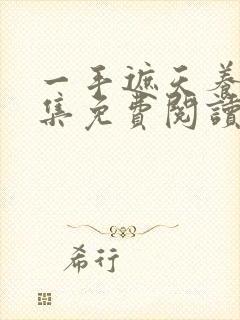 一手遮天養
集免費閱讀
希行